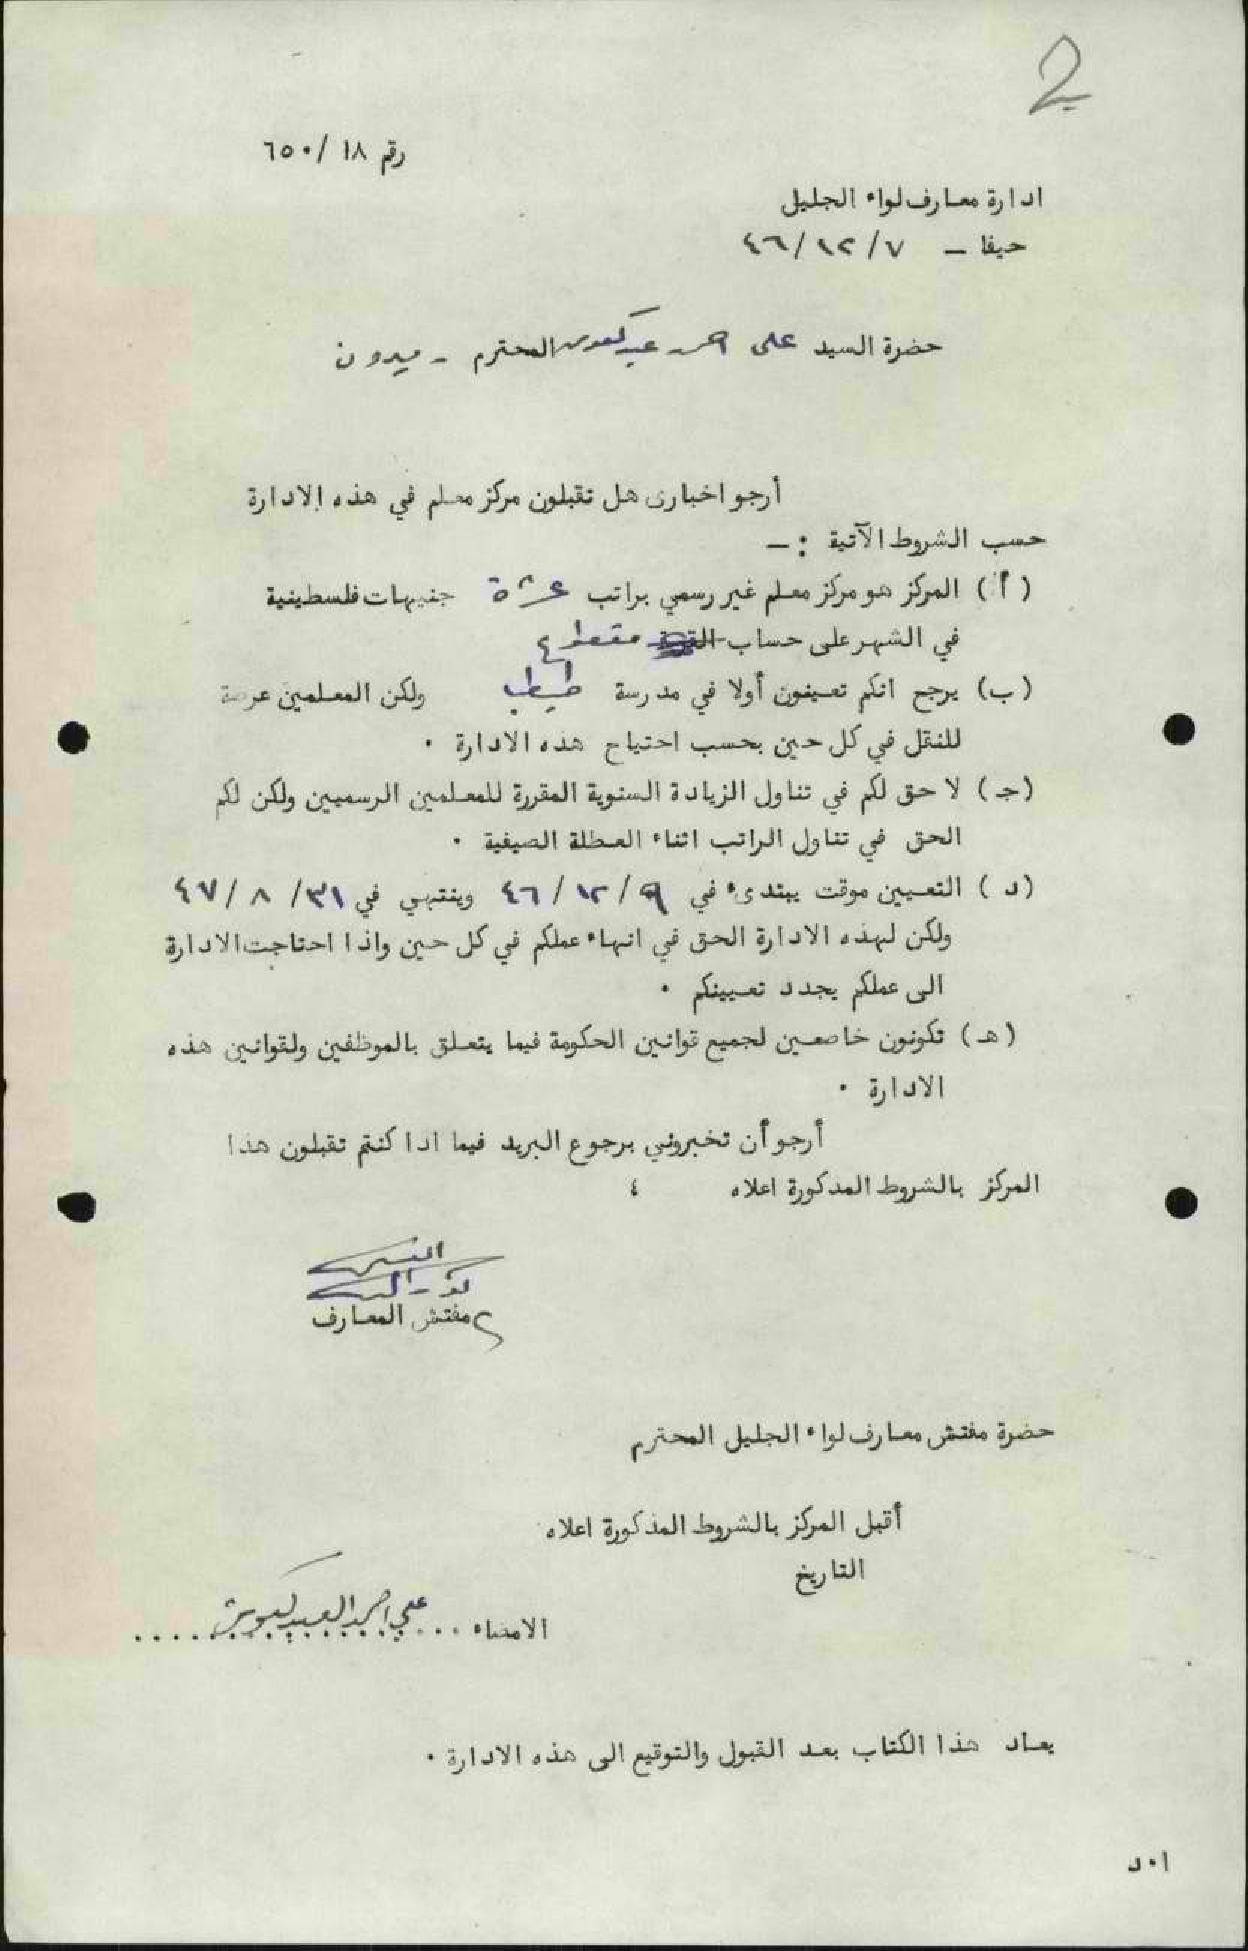 2
رقم ١٨ /٦٥٠
ادارة معارف لواء الجليل
حيفا - ٤٦/١٢/٧
حضرة السيد على احمد المحترم - ميرون
أرجو اخبارى هل تقبلون مركز معلم في هذه الادارة
حسب الشروط الآتية :-
( أ ) المركز هو مركز معلم غير رسمي براتب عشرة جنيهات فلسطينية
في الشهر على حساب القرية مقطوع
(ب) يرجح انكم تعينون أولا في مدرسة ولكن المعلمين عرضة
للنقل في كل حين بحسب احتياج هذه الادارة .
(جـ) لا حق لكم في تناول الزيادة السنوية المقررة للمعلمين الرسميين ولكن لكم
الحق في تناول الراتب اثناء العطلة الصيفية .
(د ) التعيين موقت يبتدىء في ٤٦/١٢/٩ وينتهي في ٤٧/٨/٣١
ولكن لهذه الادارة الحق في انهاء عملكم في كل حين واذا احتاجت الادارة
الى عملكم يجدد تعيينكم .
(هـ) تكونون خاضعين لجميع قوانين الحكومة فيما يتعلق بالموظفين ولقوانين هذه
الادارة .
أرجو أن تخبروني برجوع البريد فيما اذا كنتم تقبلون هذا
المركز بالشروط المذكورة اعلاه ؛
مفتش المعارف
حضرة مفتش معارف لواء الجليل المحترم
أقبل المركز بالشروط المذكورة اعلاه
التاريخ
الامضاء .... علي احمد العبد
يعاد هذا الكتاب بعد القبول والتوقيع الى هذه الادارة .
ا٠د